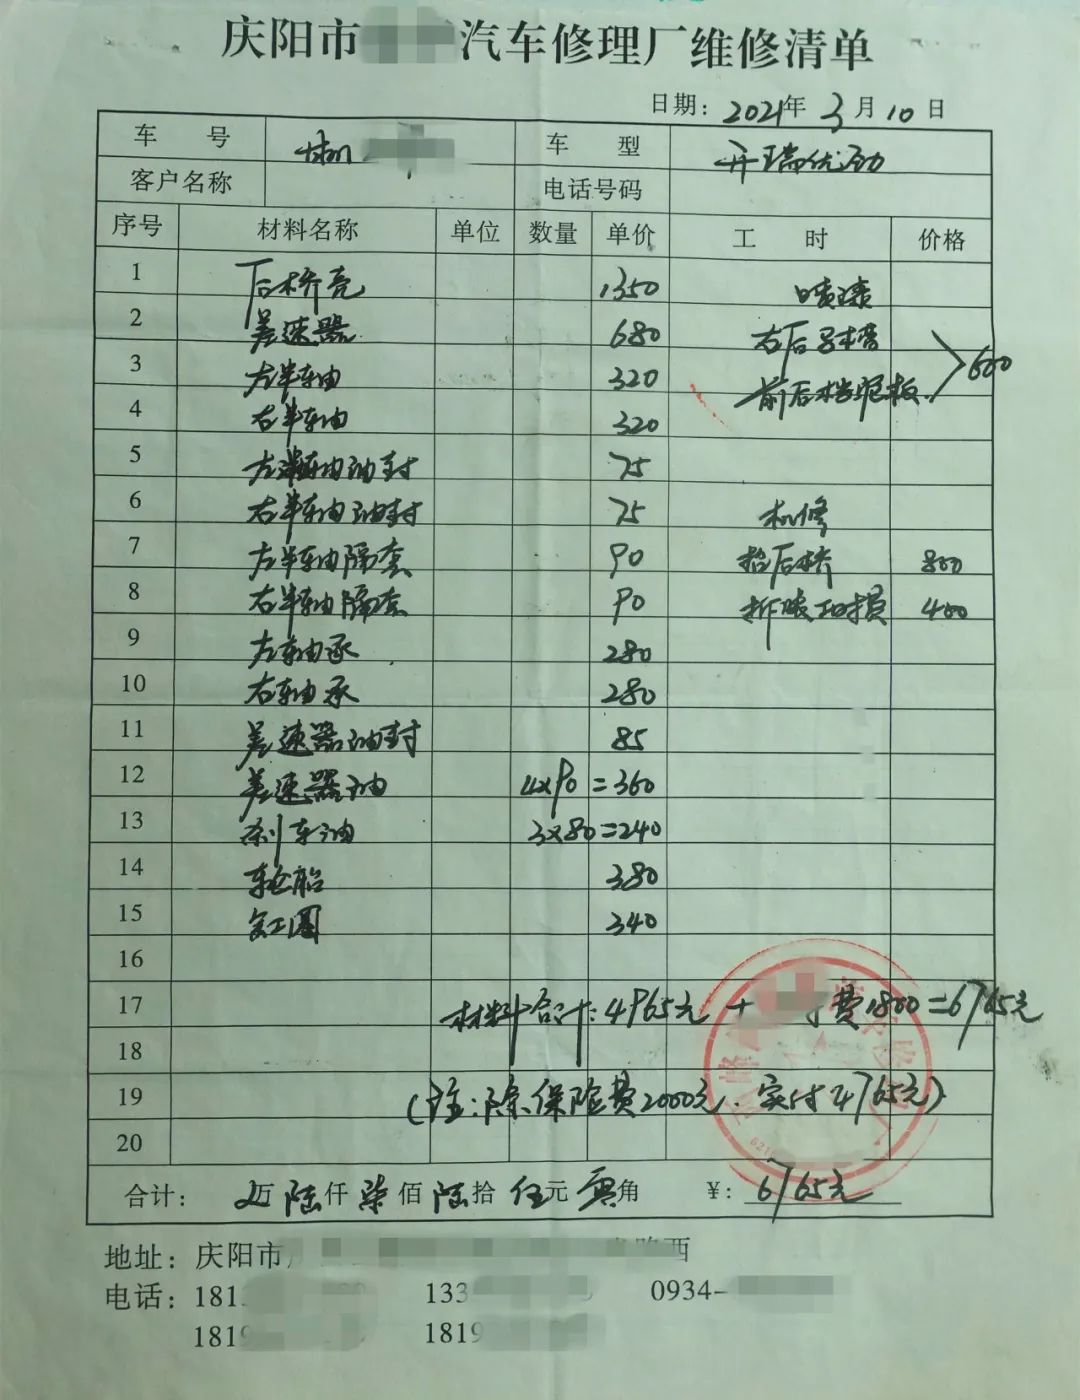 庆阳市 汽车修理厂维修清单
日期: 2021年 3月 10日
车 号 甘M 车 型 开瑞优劲
客户名称 电话号码
序号 材料名称 单位 数量 单价 工 时 价格
1 后桥壳 1350 喷漆
2 差速器 680 右后
3 左半轴 320 前后 600
4 右半轴 320
5 左半轴油封 75
6 右半轴油封 75 机修
7 左半轴隔套 90 抬后桥 800
8 右半轴隔套 90 拆 400
9 左轴承 280
10 右轴承 280
11 差速器油封 85
12 差速器油 4×90=360
13 刹车油 3×80=240
14 轮胎 380
15 钢圈 340
16
17 材料合计:4965元 + 费1800=6765元
18
19 (注:除保险费2000元.实付4765元)
20
合计: 万陆仟柒佰陆拾伍元零角 ¥:6765元
地址:庆阳市 路西
电话:181 133 0934-
1819 1819